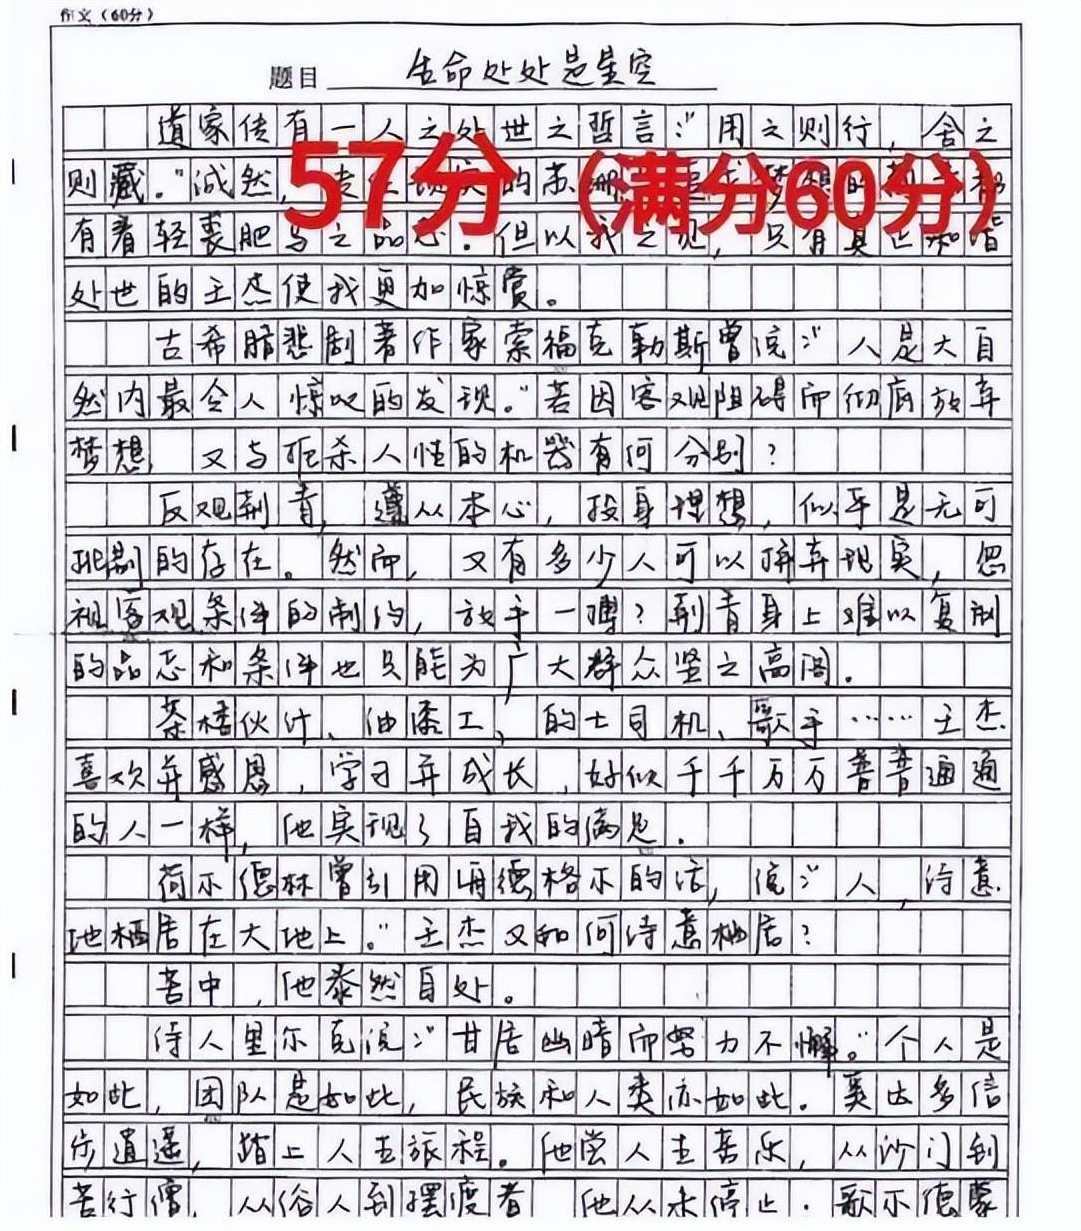 作文（60分）
题目 生命处处是星空
道家传有一人之处世之哲言："用之则行，舍之
57分（满分60分）
则藏。"诚然，的苏
有着轻裘肥马之品态.但以我之见，只有具
处世的王杰使我更加惊赏。
古希腊悲剧著作家索福克勒斯曾说："人是大自
然内最令人惊叹的发现。"若因客观阻碍而彻底放弃
梦想，又与扼杀人性的机器有何分别？
反观荆青，遵从本心，投身理想，似乎是无可
挑剔的存在。然而，又有多少人可以摒弃现实，忽
视客观条件的制约，放手一搏？荆青身上难以复制
的品态和条件也只能为广大群众竖之高阁.
茶楼伙计、油漆工、的士司机、歌手……王杰
喜欢并感恩，学习并成长，好似千千万万普普通通
的人一样，他实现了自我的满足.
荷尔德林曾引用海德格尔的话，说："人，诗意
地栖居在大地上。"王杰又如何诗意栖居？
苦中，他泰然自处。
诗人里尔克说："甘居幽暗而努力不懈。"个人是
如此，团队是如此，民族和人类亦如此.奚达多信
步逍遥，踏上人去旅程。他尝人去苦乐，从沙门到
苦行僧，从俗人到摆渡者 他从未停止.歌尔德蒙